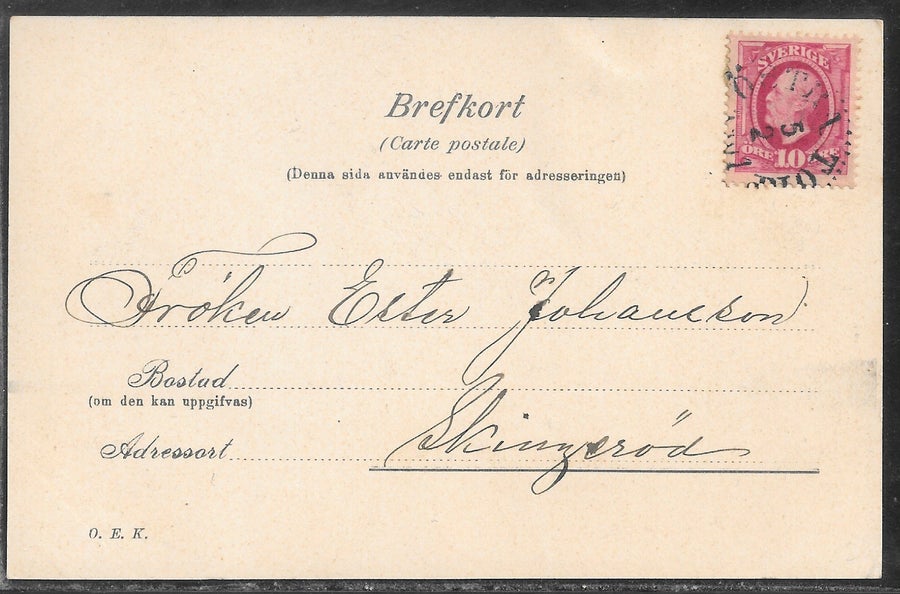 SVERIGE
ÖRE 10 ÖRE
5
2
Brefkort
(Carte postale)
(Denna sida användes endast för adresseringen)
Fröken Ester Johansson
Bostad
(om den kan uppgifvas)
Adressort Skingeröd
O. E. K.